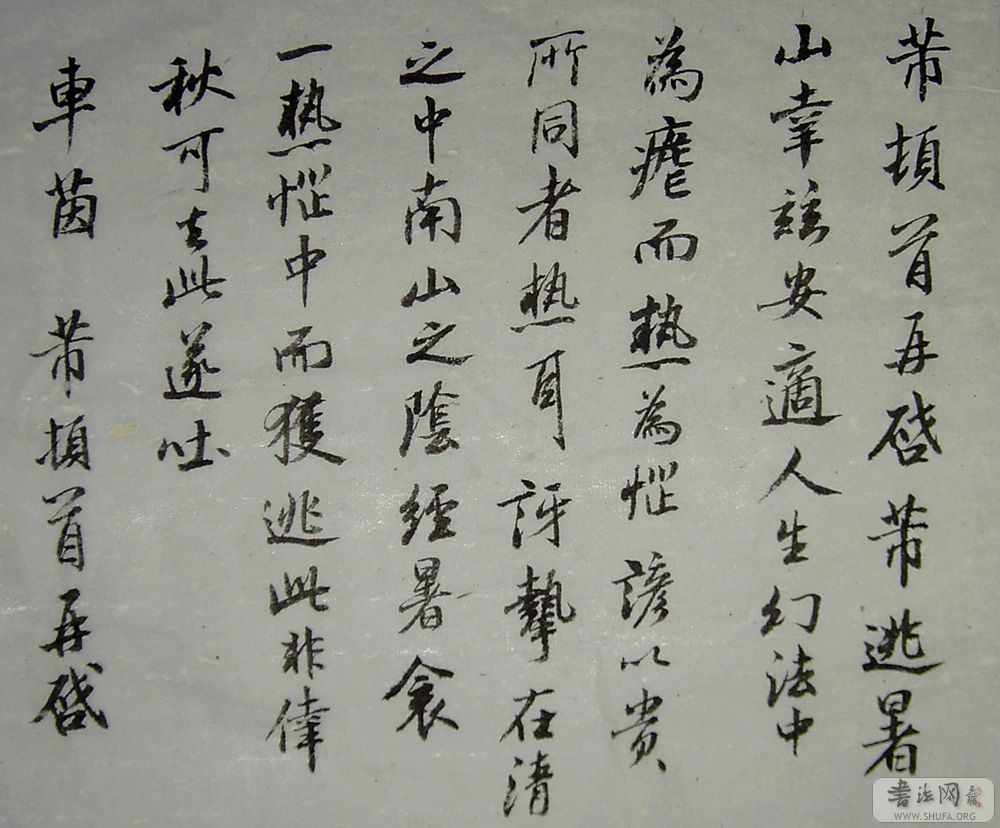 芾頓首再啓芾逃暑
山幸安適人生幻法中
為瘧而熱為惱諺以貴
所同者熱耳訝摯在清
之中南山之陰經暑衾
一熱惱中而獲逃此非偉
秋可去此遂吐
車茵 芾頓首再啓
书法网
WWW.SHUFA.ORG